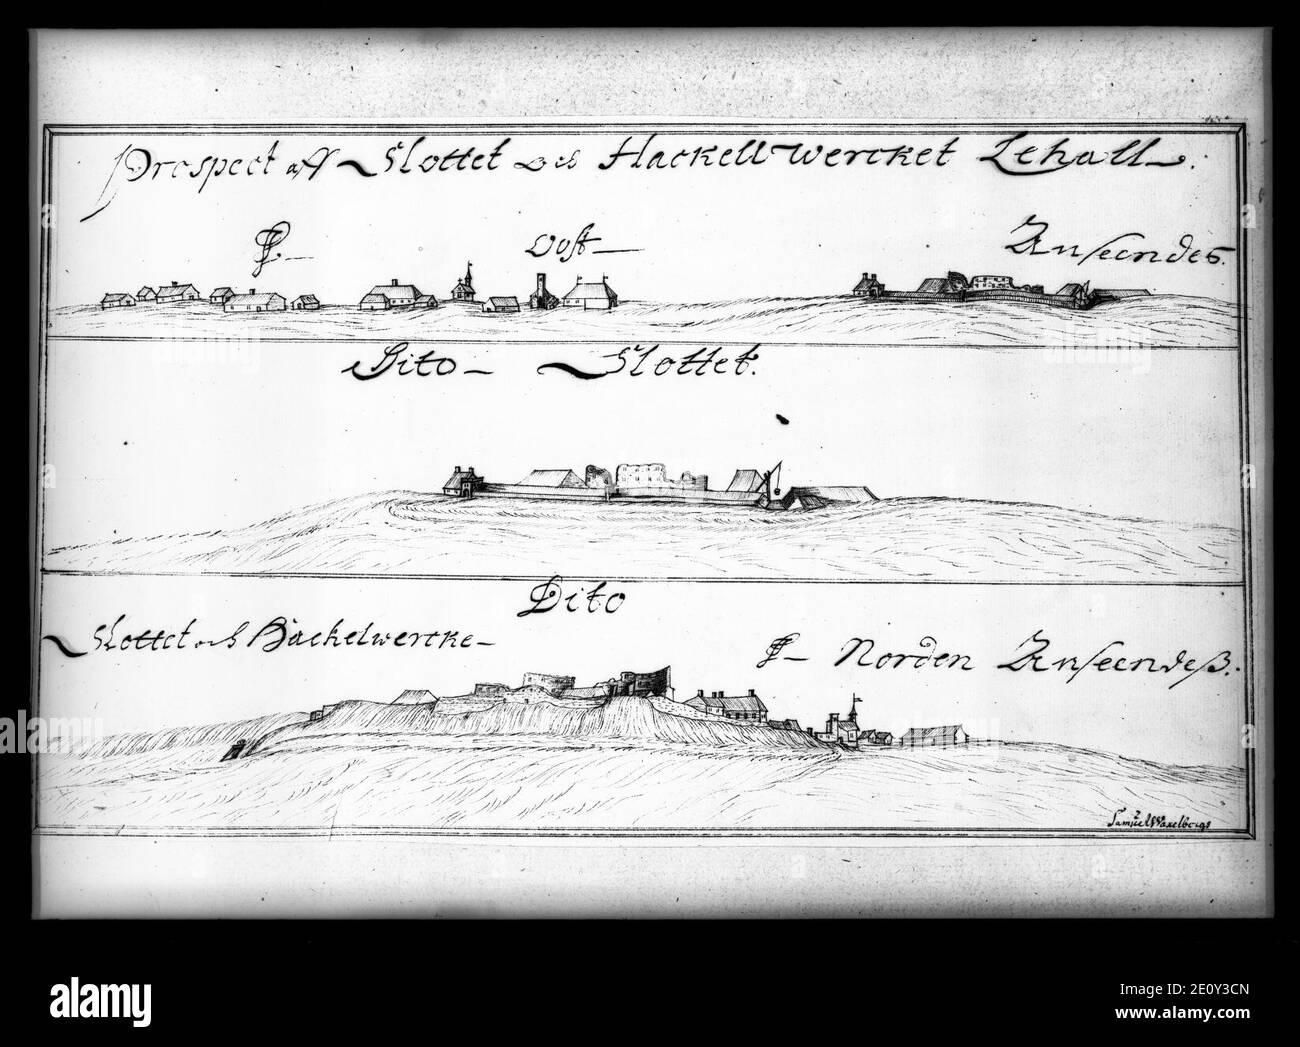 Prospect aff Slottet och Hackell wercket Lehall.
P. — Oost — Anseendes.
Dito — Slottet.
Dito
Slottet och Hackelwercke —
P — Norden Anseendeß.
Samuel Waxelbergs
alamy
www.alamy.com
Image ID: 2E0Y3CN